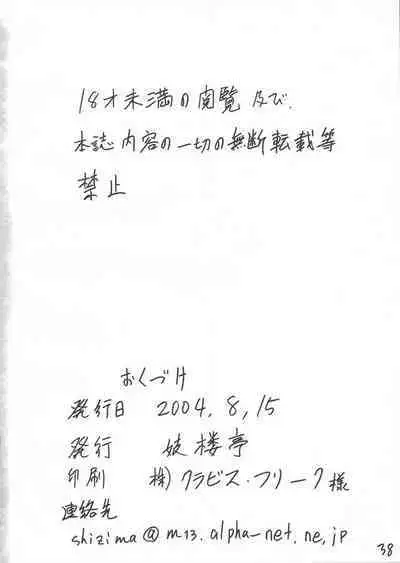 18才未満の閲覧及び、
本誌内容の一切の無断転載等
禁止
おくづけ
発行日 2004.8.15
発行 妓楼亭
印刷 (株)クラビス・フリーク様
連絡先
shizima@m13.alpha-net.ne.jp
38